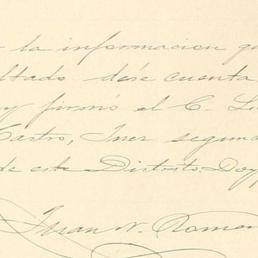 la informacion q
ltado dése cuenta
y firmó el C. L
Castro, Juez segun
de este Distrito. Doy
Juan N. Roman